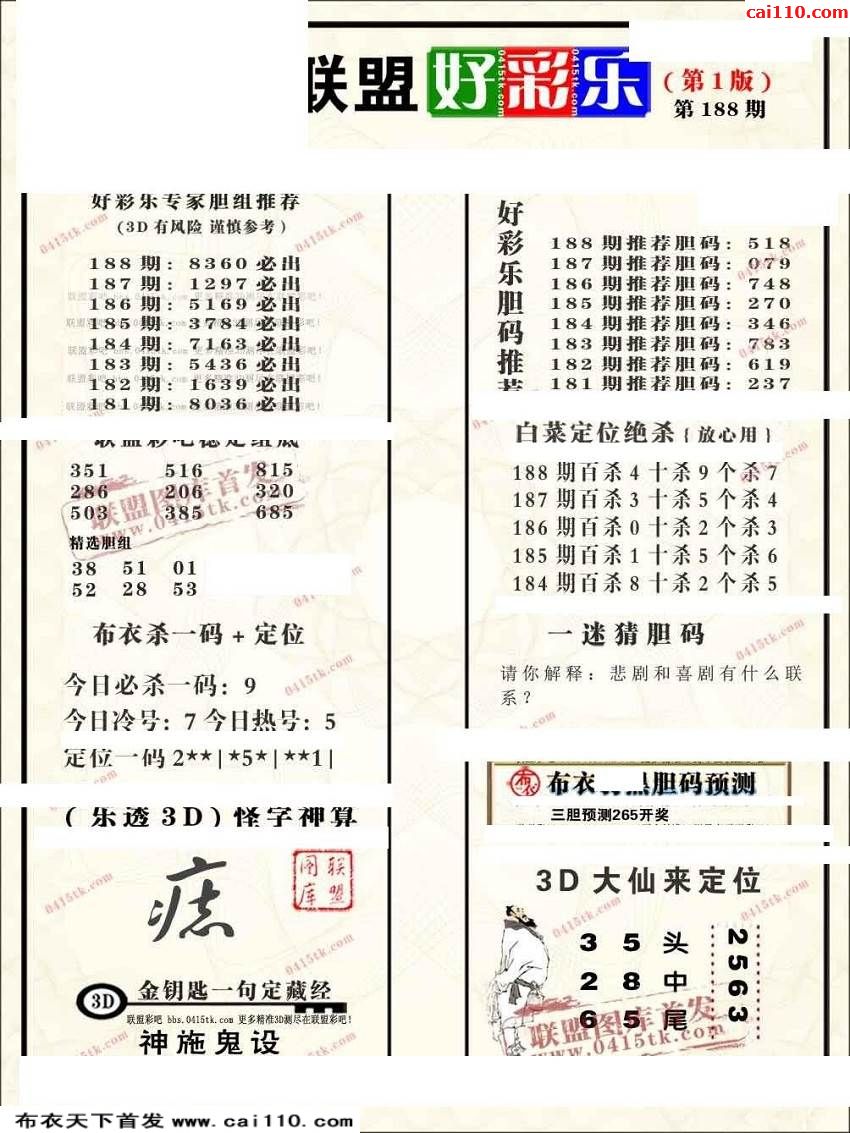 cai110.com
联盟好彩乐
0415tk.com 0415tk.com
(第1版)
第188期
好彩乐专家胆组推荐
(3D有风险 谨慎参考)
188期: 8360必出
187期: 1297必出
186期: 5169必出
185期: 3784必出
184期: 7163必出
183期: 5436必出
182期: 1639必出
181期: 8036必出
联盟彩吧稳定组底
351 516 815
286 206 320
503 385 685
联盟图库首发
www.0415tk.com
精选胆组
38 51 01
52 28 53
布衣杀一码+定位
今日必杀一码: 9
今日冷号: 7 今日热号: 5
定位一码 2**|*5*|**1|
(乐透3D)怪字神算
痣
联盟图库
3D 金钥匙一句定藏经
联盟彩吧 bbs.0415tk.com 更多精准3D测尽在联盟彩吧!
神施鬼设
好彩乐胆码推荐
188期推荐胆码: 518
187期推荐胆码: 079
186期推荐胆码: 748
185期推荐胆码: 270
184期推荐胆码: 346
183期推荐胆码: 783
182期推荐胆码: 619
181期推荐胆码: 237
白菜定位绝杀{放心用}
188期百杀4十杀9个杀7
187期百杀3十杀5个杀4
186期百杀0十杀2个杀3
185期百杀1十杀5个杀6
184期百杀8十杀2个杀5
一迷猜胆码
请你解释: 悲剧和喜剧有什么联
系?
布衣 胆码预测
三胆预测265开奖
3D大仙来定位
3 5 头
2 8 中
6 5 尾
2563
联盟图库首发
www.0415tk.com
布衣天下首发 www.cai110.com